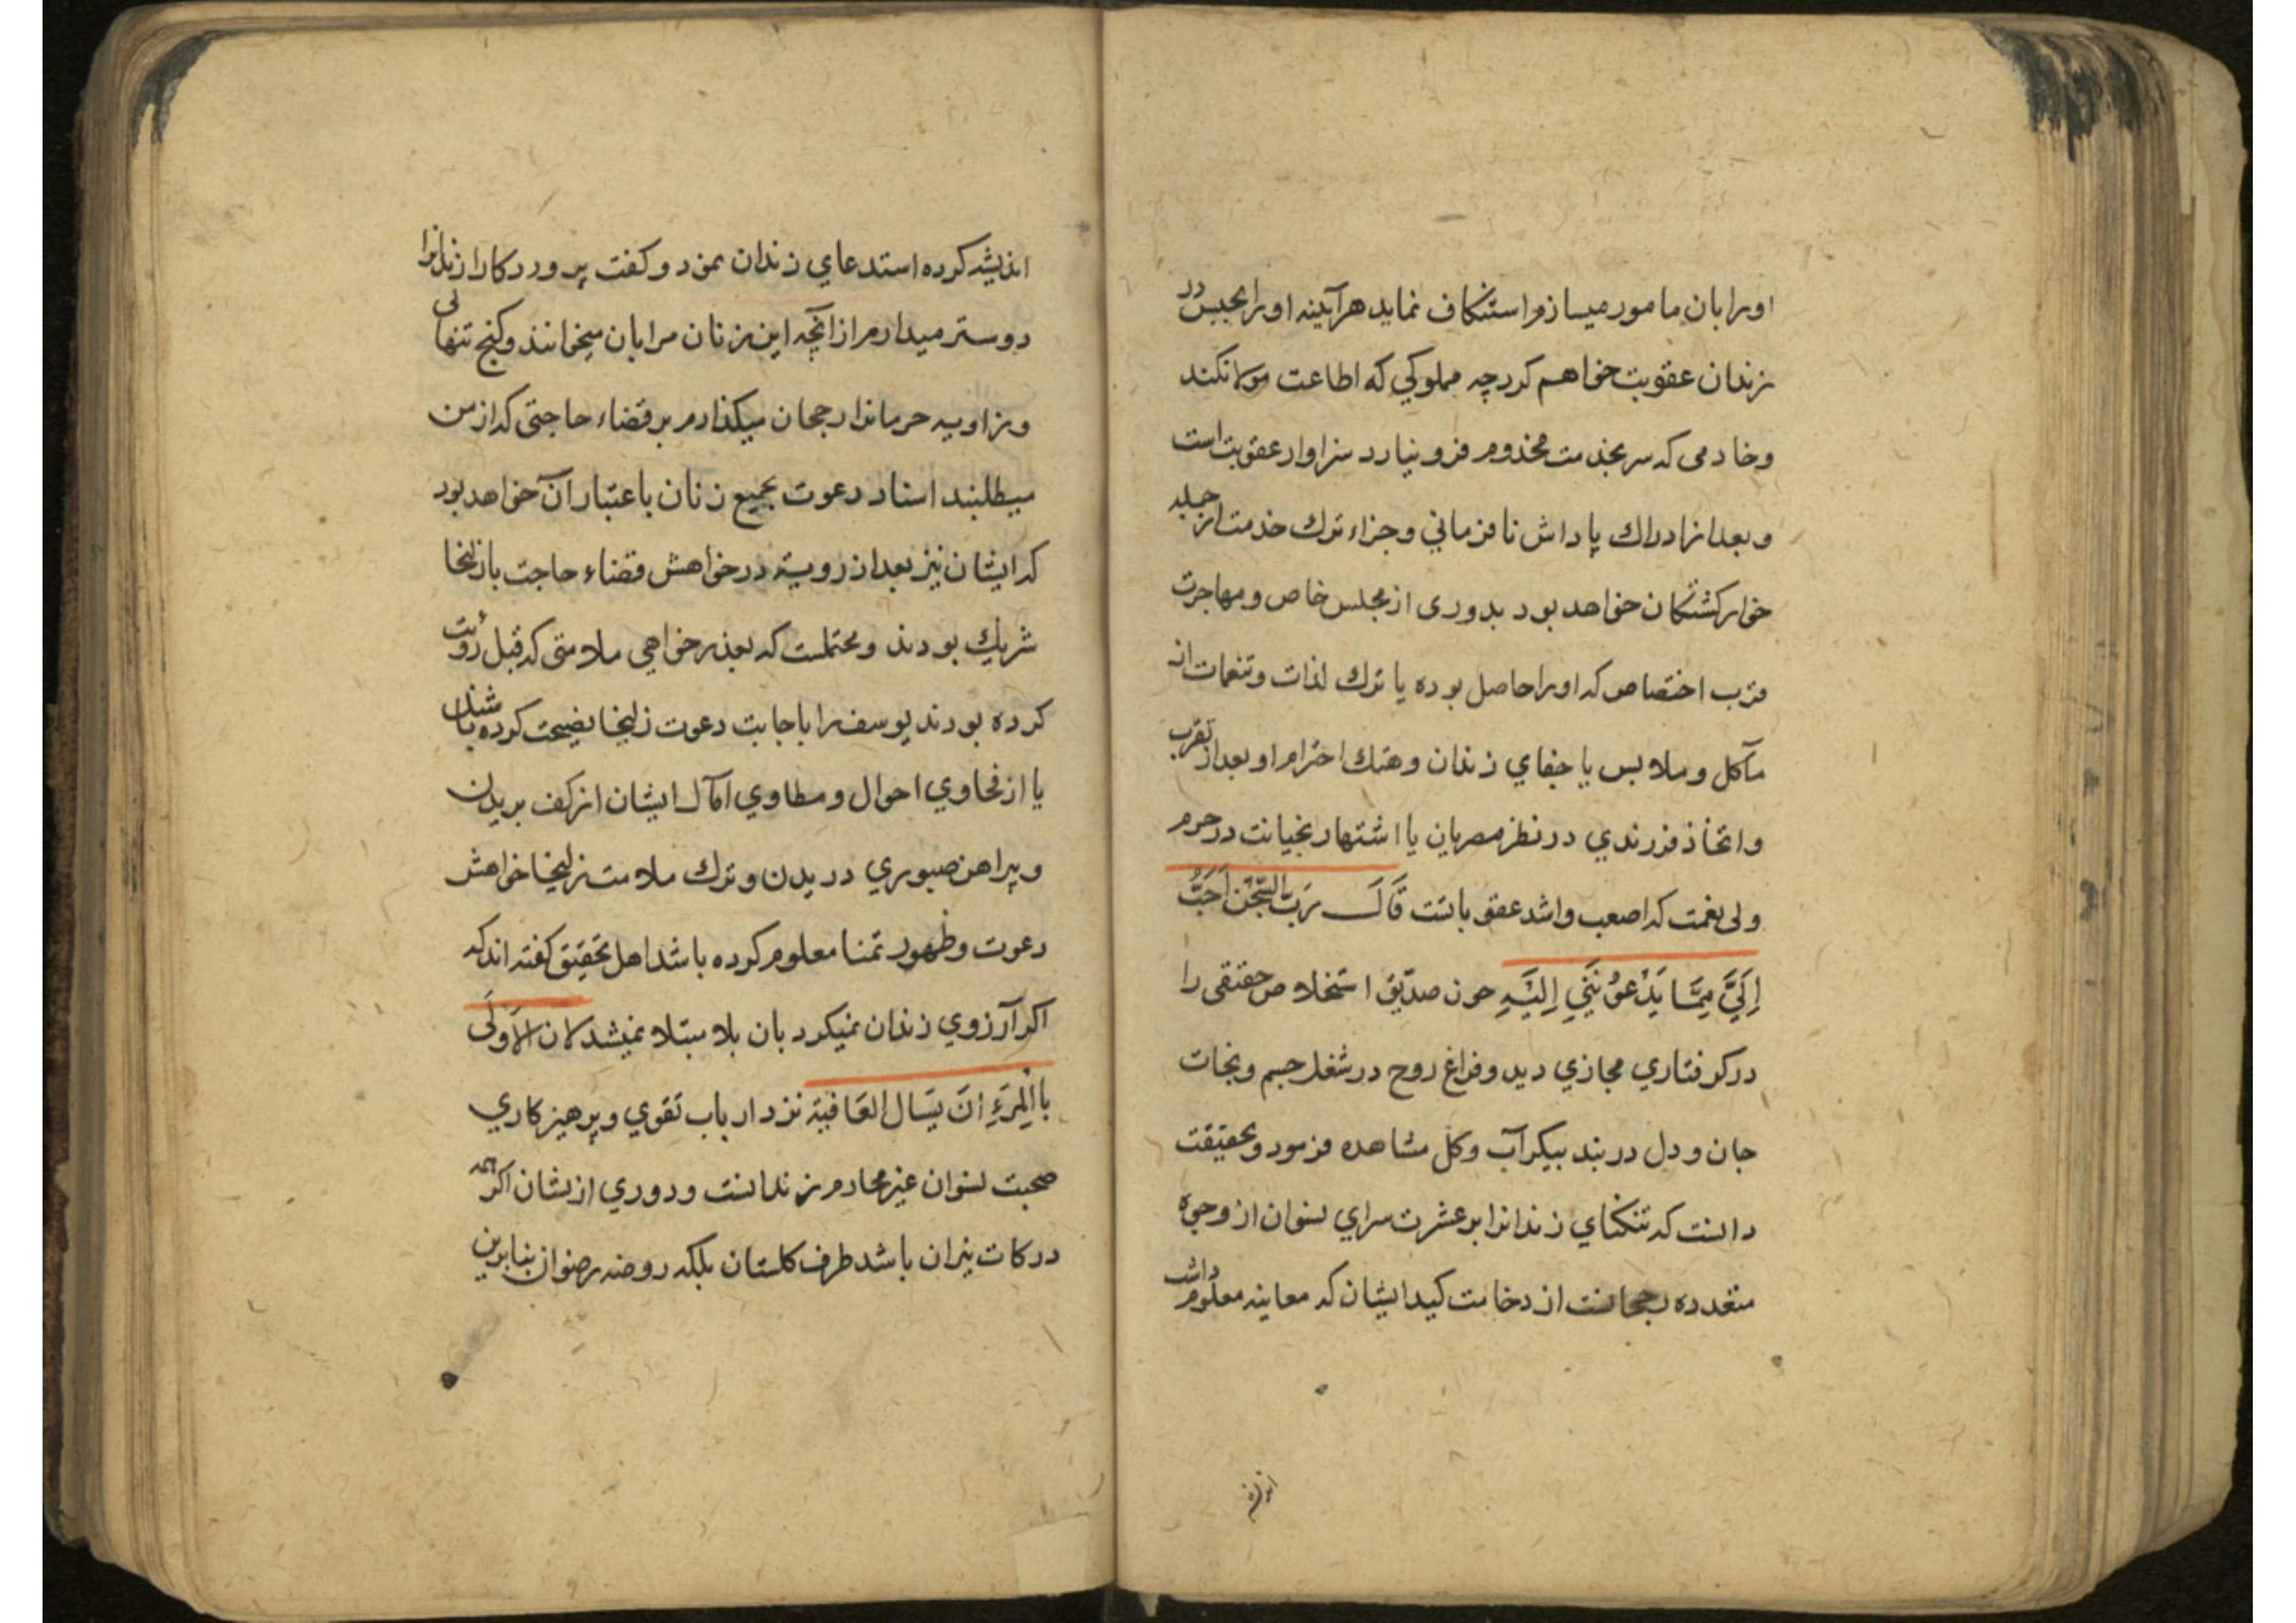 اورا بان مامور میسازم استنکاف نماید هرآینه اورا بحبس در
زندان عقوبت خواهم کرد چه مملوکی که اطاعت مولا نکند
وخادمی که سر بخدمت مخدوم فرو نیارد سزاوار عقوبت است
وبعد از ادراك پاداش نافرمانی وجزاء ترك خدمت از جمله
خوارکشتکان خواهد بود بدوری از مجلس خاص ومهاجرت
قرب اختصاص که اورا حاصل بوده یا ترك لذات وتنعمات از
مآکل وملابس یا جفای زندان وهتك احترام او بعد از تقرب
واتخاذ فرزندی در نظر مصریان یا اشتهار بخیانت در حرم
ولی نعمت که اصعب واشد عقوباتست قَالَ رَبِّ السِّجْنُ اَحَبُّ
اِلَیَّ مِمَّا یَدْعُونَنِی اِلَیْهِ چون صدّیق استخلاص حقیقی را
در کرفتاری مجازی دید وفراغ روح در شغل جسم ونجات
جان ودل در بند پیکر آب وکل مشاهده فرمود وبحقیقت
دانست که تنکنای زندانرا بر عشرت سرای نسوان از وجوه
متعدده رجحانست از وخامت کید ایشان که معاینه معلوم داشت
اندیشه کرده استدعای زندان نمود وکفت پروردکارا زندانرا
دوستر میدارم از آنچه این زنان مرا بان میخوانند وکنج تنهائی
وزاویه حرمانرا رجحان میکذارم بر قضاء حاجتی که از من
میطلبند اسناد دعوت بجمیع زنان باعتبار آن خواهد بود
که ایشان نیز بعد از رویت در خواهش قضاء حاجت با زلیخا
شریك بودند ومحتملست که بعذر خواهی ملامتی که قبل رؤیت
کرده بودند یوسف را باجابت دعوت زلیخا نصیحت کرده باشند
یا از فحاوی احوال ومطاوی آمال ایشان از کف بریدن
وپیراهن صبوری دریدن وترك ملامت زلیخا خواهش
دعوت وظهور تمنا معلوم کرده باشد اهل تحقیق کفته اند که
اکر آرزوی زندان نمیکرد بان بلا مبتلا نمیشد لان الاَوْلَی
بالمَرْءِ اَنْ یَسَال العَافیة نزد ارباب تقوی وپرهیزکاری
صحبت نسوان غیر محارم زندانست ودوری ازیشان اکرچه
درکات نیران باشد طرف کلستان بلکه روضه رضوان بنابرین